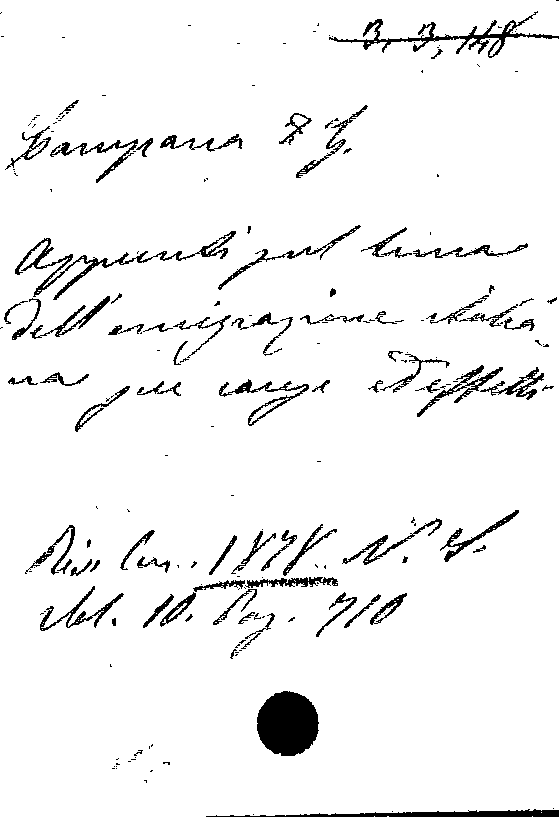 3, 3, 148
Campana F G.
Appunti sul tema
dell'emigrazione italia
na per cause ed effetti
1878. N. S.
Vol. 10. Pag. 710